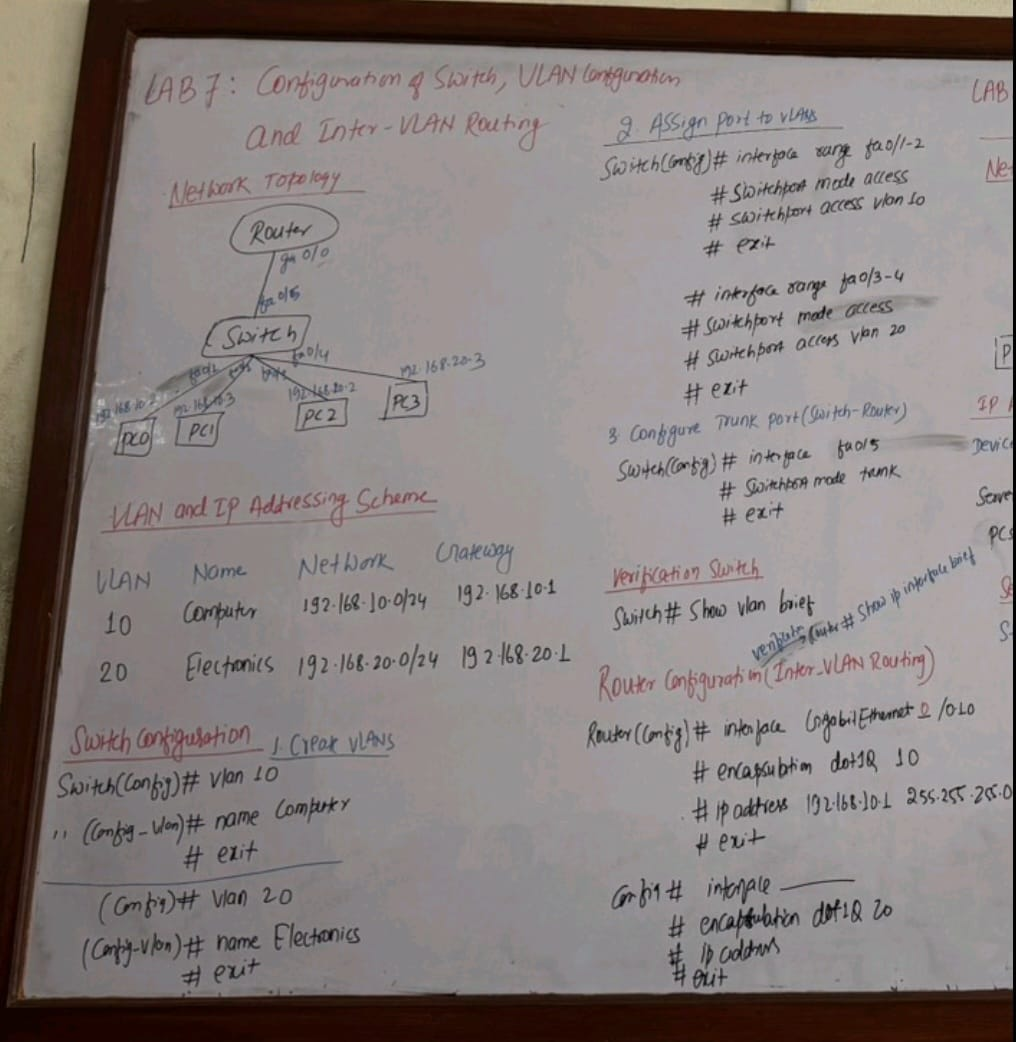 LAB 7: Configuration of Switch, VLAN Configuration
and Inter-VLAN Routing
Network Topology
Router
ga 0/0
fa 0/5
Switch
fa0/4
192.168.20.3
192.168.10.3
192.168.20.2
PC0
PC1
PC2
PC3
VLAN and IP Addressing Scheme
VLAN Name Network Gateway
10 Computer 192.168.10.0/24 192.168.10.1
20 Electronics 192.168.20.0/24 192.168.20.1
Switch Configuration 1. Creak VLANS
Switch(Config)# vlan 10
,, (Config-vlan)# name Computer
# exit
(Config)# vlan 20
(Config-vlan)# name Electronics
# exit
2. Assign port to VLANs
Switch(Config)# interface range fa0/1-2
# Switchport mode access
# switchport access vlan 10
# exit
# interface range fa0/3-4
# Switchport mode access
# Switchport access vlan 20
# exit
3. Configure Trunk port (Switch-Router)
Switch(Config)# interface fa0/5
# Switchport mode trunk
# exit
Verification Switch
Switch# Show vlan brief
Router# Show ip interface brief
Router Configuration (Inter-VLAN Routing)
Router(Config)# interface GigabitEthernet 0/0.10
# encapsulation dot1Q 10
# ip address 192.168.10.1 255.255.255.0
# exit
Config# interface ______
# encapsulation dot1Q 20
# ip address
# exit
LAB
Ne
P
IP A
Device
Serve
PCs
S